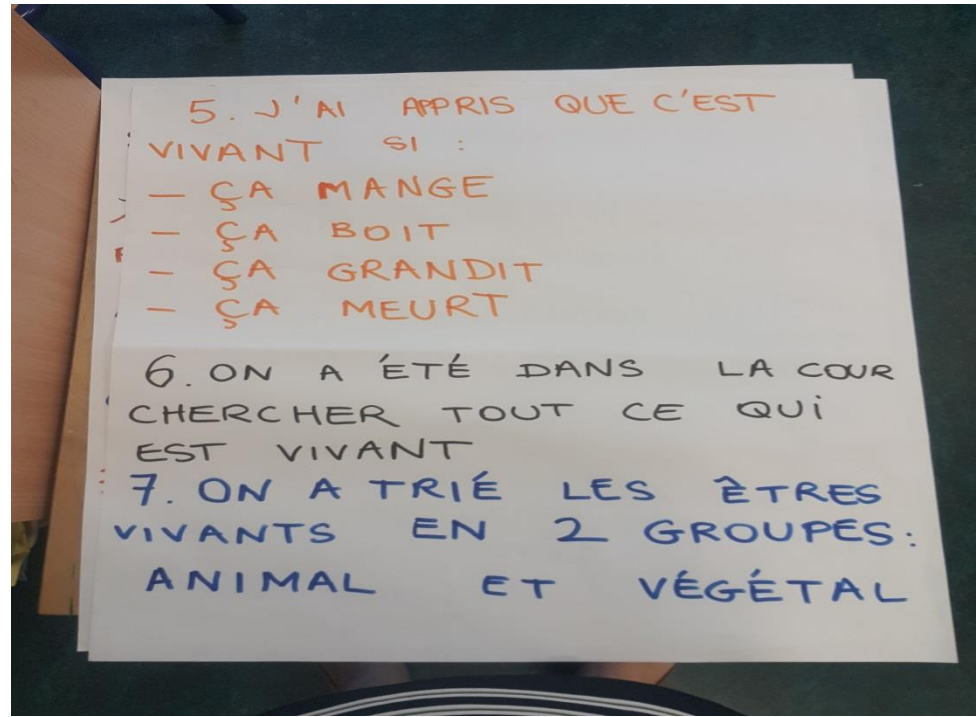 5. J'AI APPRIS QUE C'EST
VIVANT SI :
- ÇA MANGE
- ÇA BOIT
- ÇA GRANDIT
- ÇA MEURT
6. ON A ÉTÉ DANS LA COUR
CHERCHER TOUT CE QUi
EST VIVANT
7. ON A TRIÉ LES ÊTRES
VIVANTS EN 2 GROUPES:
ANIMAL ET VÉGÉTAL